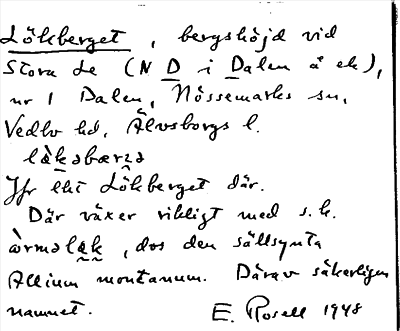 Lökberget, bergshöjd vid
Stora Le (N D i Dalen å ek),
nr 1 Dalen, Nössemarks sn,
Vedbo hd, Älvsborgs l.
Jfr Lökberget där.
Där växer rikligt med s.k.
òrməlǫk, dvs den sällsynta
Allium montanum. Därav säkerligen
namnet. E. Rosell 1948